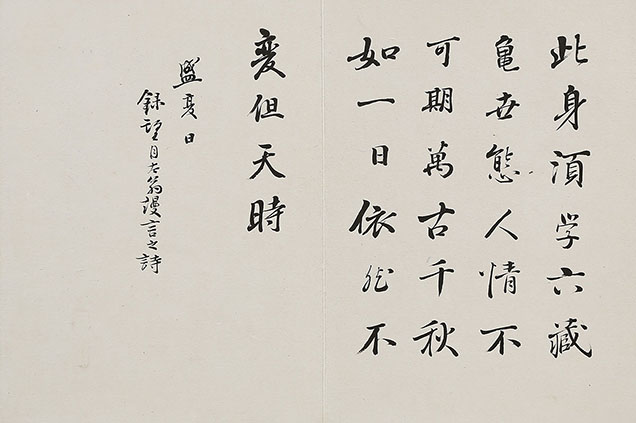 此身湏学六藏
亀世態人情不
可期萬古千秋
如一日依然不
変但天時
盛夏日
録望月老翁謾言之詩